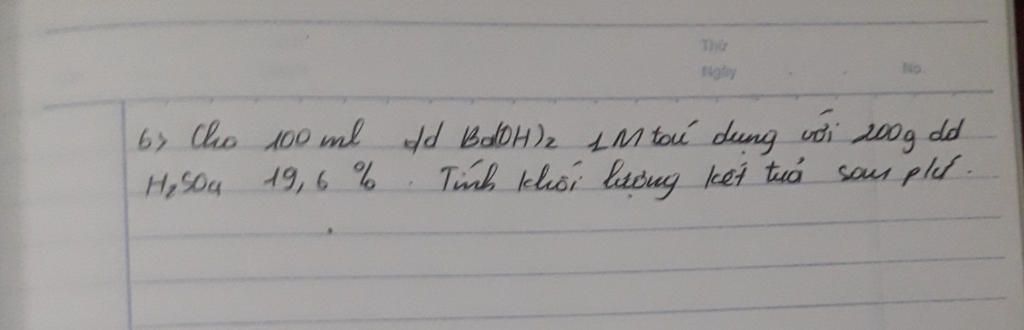 Thứ
Ngày No.
6> Cho 100 ml dd Ba(OH)2 1M tác dụng với 200g dd
H2SO4 19,6 %. Tính khối lượng kết tủa sau pứ.